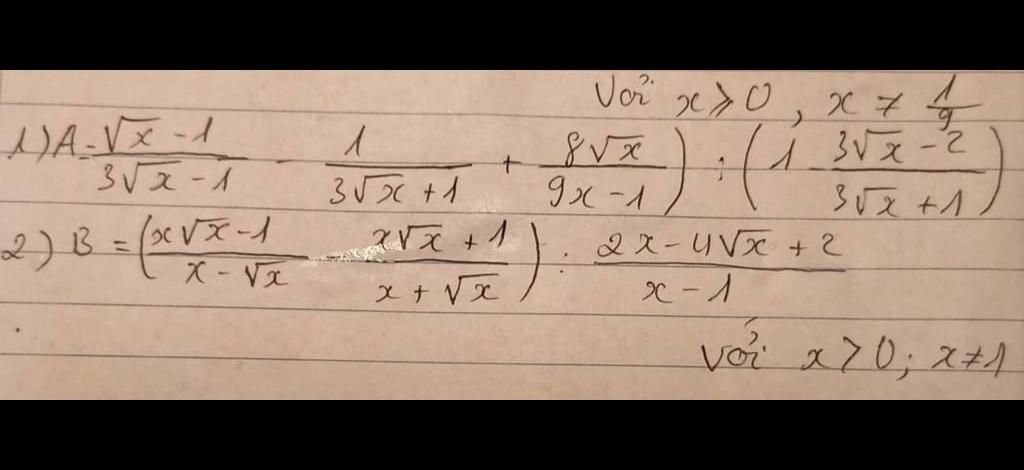 Với x ⩾ 0 , x ≠ 1/9
1) A = (√x - 1)/(3√x - 1) - 1/(3√x + 1) + 8√x/(9x - 1)) : (1 - (3√x - 2)/(3√x + 1))
2) B = ((x√x - 1)/(x - √x) - (x√x + 1)/(x + √x)) : (2x - 4√x + 2)/(x - 1)
Với x > 0 ; x ≠ 1